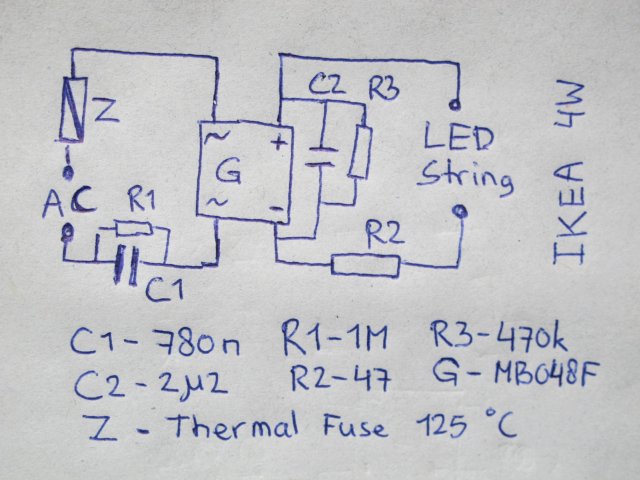 C2 R3
Z
~ +
G
~ -
LED
String
AC R1
R2
C1
IKEA 4W
C1-780n R1-1M R3-470k
C2-2µ2 R2-47 G-MB048F
Z - Thermal Fuse 125 °C